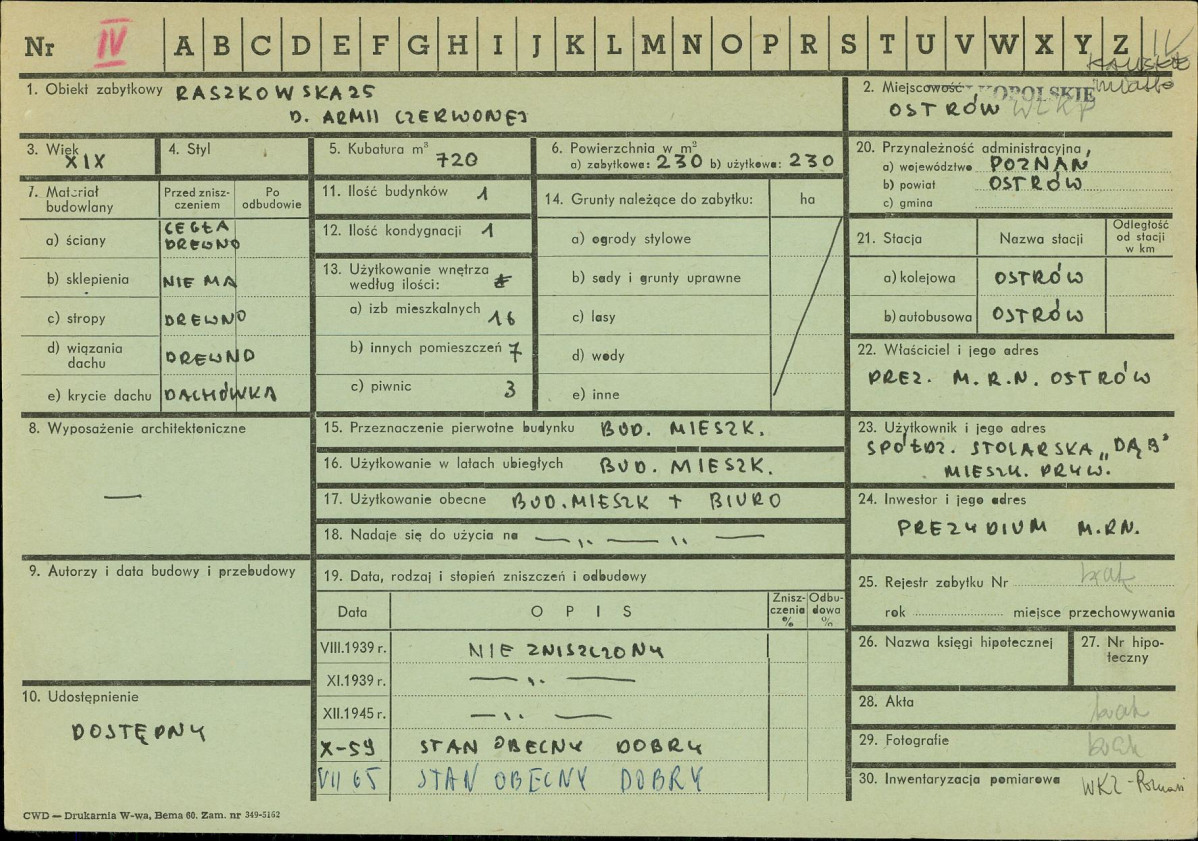 Nr IV A B C D E F G H I J K L M N O P R S T U V W X Y Z IV
KALISKIE
miasto
1. Obiekt zabytkowy RASZKOWSKA 25
D. ARMII CZERWONEJ
2. Miejscowość
OSTRÓW WLKP
3. Wiek
XIX
4. Styl
5. Kubatura m³ 720
6. Powierzchnia w m²
a) zabytkowa: 230 b) użytkowa: 230
20. Przynależność administracyjna
a) województwo POZNAŃ
b) powiat OSTRÓW
c) gmina
7. Materiał budowlany
Przed zniszczeniem
Po odbudowie
a) ściany CEGŁA DREWNO
b) sklepienia NIE MA
c) stropy DREWNO
d) wiązania dachu DREWNO
e) krycie dachu DACHÓWKA
11. Ilość budynków 1
12. Ilość kondygnacji 1
13. Użytkowanie wnętrza według ilości:
a) izb mieszkalnych 16
b) innych pomieszczeń 7
c) piwnic 3
14. Grunty należące do zabytku: ha
a) ogrody stylowe
b) sady i grunty uprawne
c) lasy
d) wody
e) inne
21. Stacja
Nazwa stacji
Odległość od stacji w km
a) kolejowa OSTRÓW
b) autobusowa OSTRÓW
22. Właściciel i jego adres
PREZ. M.R.N. OSTRÓW
8. Wyposażenie architektoniczne
—
15. Przeznaczenie pierwotne budynku BUD. MIESZK.
16. Użytkowanie w latach ubiegłych BUD. MIESZK.
17. Użytkowanie obecne BUD. MIESZK + BIURO
18. Nadaje się do użycia na — ,, — ,, —
23. Użytkownik i jego adres
SPÓŁDZ. STOLARSKA „DĄB"
MIESZK. PRYW.
24. Inwestor i jego adres
PREZYDIUM M.R.N.
9. Autorzy i data budowy i przebudowy
19. Data, rodzaj i stopień zniszczeń i odbudowy
Data
O P I S
Zniszczenie %
Odbudowa %
VIII.1939 r. NIE ZNISZCZONY
XI.1939 r. — ,, —
XII.1945 r. — ,, —
X-59 STAN OBECNY DOBRY
VII 65 STAN OBECNY DOBRY
10. Udostępnienie
DOSTĘPNY
25. Rejestr zabytku Nr brak
rok miejsce przechowywania
26. Nazwa księgi hipotecznej
27. Nr hipoteczny
28. Akta brak
29. Fotografie brak
30. Inwentaryzacja pomiarowa WKZ - Poznań
CWD — Drukarnia W-wa, Bema 60. Zam. nr 349-5162